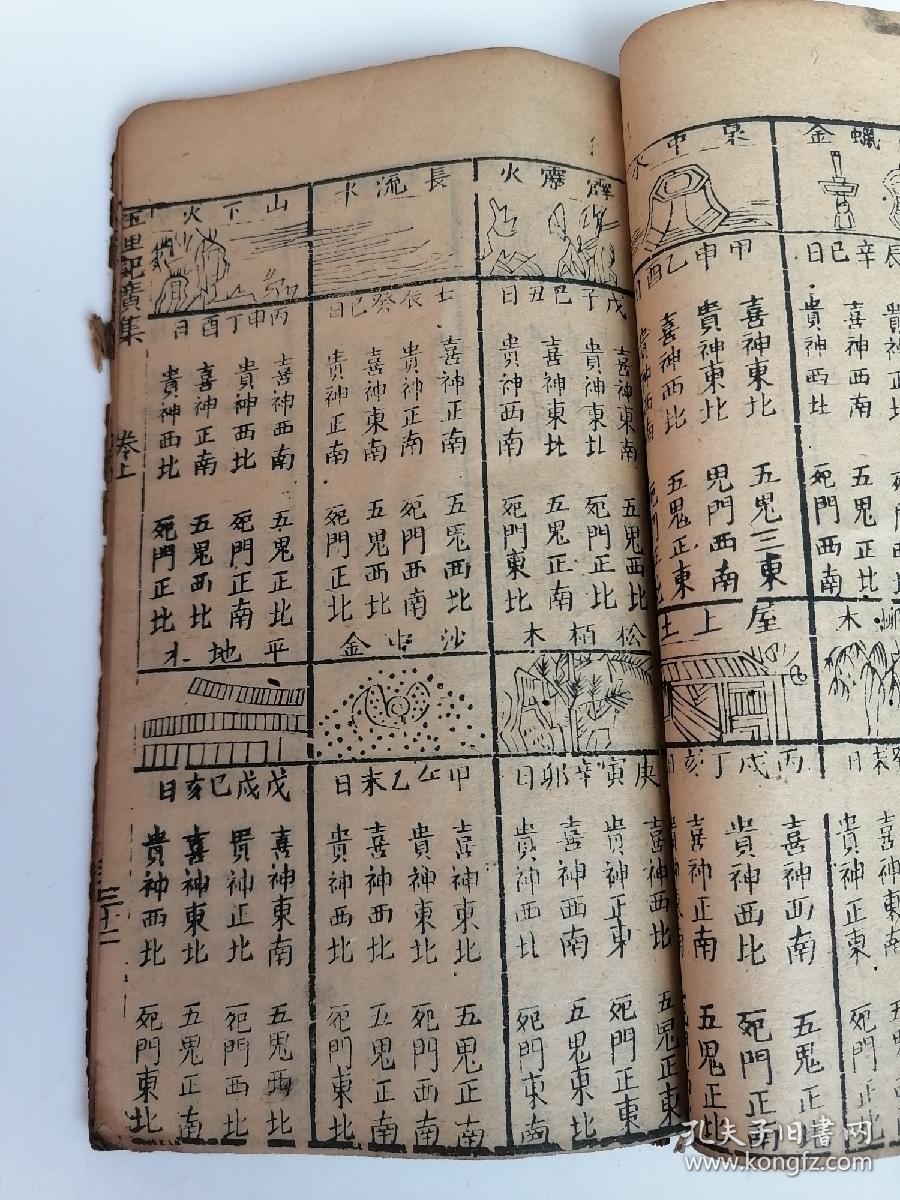 蠟金
辰辛巳日
喜神西南
五鬼正北
貴神西北
死門西南
泉中水
甲申乙酉日
喜神東北
五鬼三東
貴神東北
鬼門西南
喜神西北
五鬼正東
柳木
未日
貴神正東
死門正
屋上土
丙戌丁亥
喜神西南
五鬼正北
貴神西北
死門正南
喜神正南
五鬼正北
霹靂火
戊子己丑日
喜神東南
五鬼西北
貴神東北
死門正北
喜神東北
五鬼正南
貴神西南
死門東北
長流水
壬辰癸巳日
喜神正南
五鬼西北
貴神正南
死門西南
喜神東南
五鬼西北
貴神正南
死門正北
山下火
丙申丁酉日
喜神西南
五鬼正北
貴神西北
死門正南
喜神正南
五鬼西北
貴神西北
死門正北
松栢木
庚寅辛卯日
喜神西北
五鬼正東
貴神正東
死門正東
喜神西南
五鬼正北
貴神西北
死門東南
沙中金
甲午乙未日
喜神東北
五鬼正南
貴神東北
死門西南
喜神西北
五鬼正南
貴神西北
死門東北
平地木
戊戌己亥日
喜神東南
五鬼西北
貴神正北
死門西北
喜神東北
五鬼正南
貴神西北
死門東北
玉匣記廣集
卷上
三十二
孔夫子旧书网
www.kongfz.com